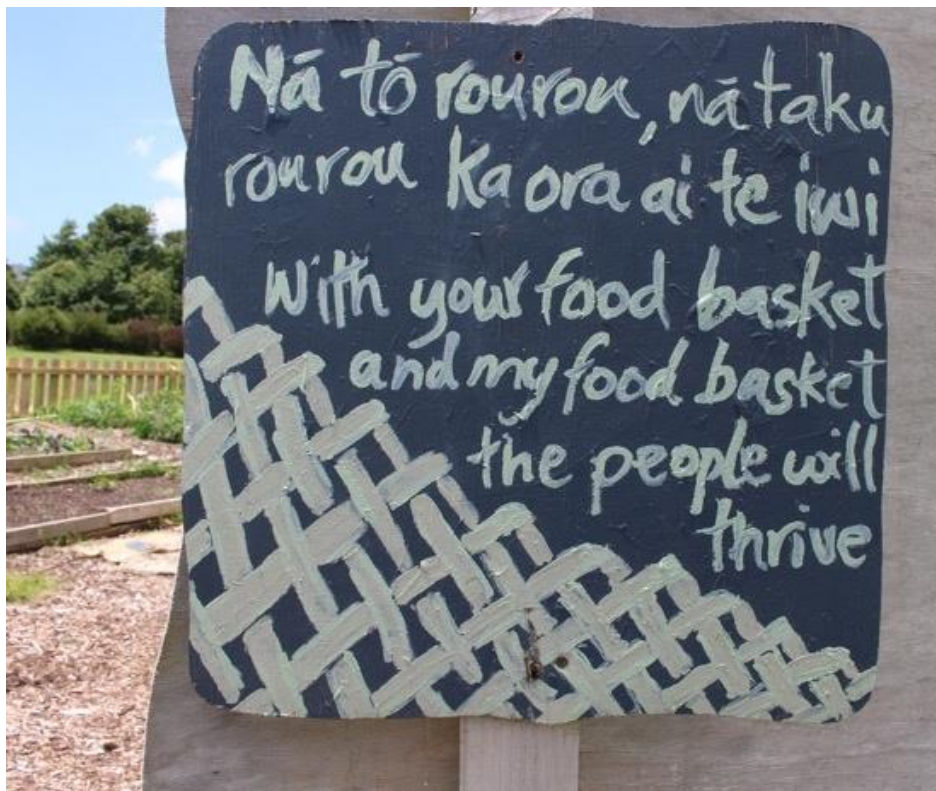 Nā tō rourou, nā taku
rourou ka ora ai te iwi
With your food basket
and my food basket
the people will
thrive